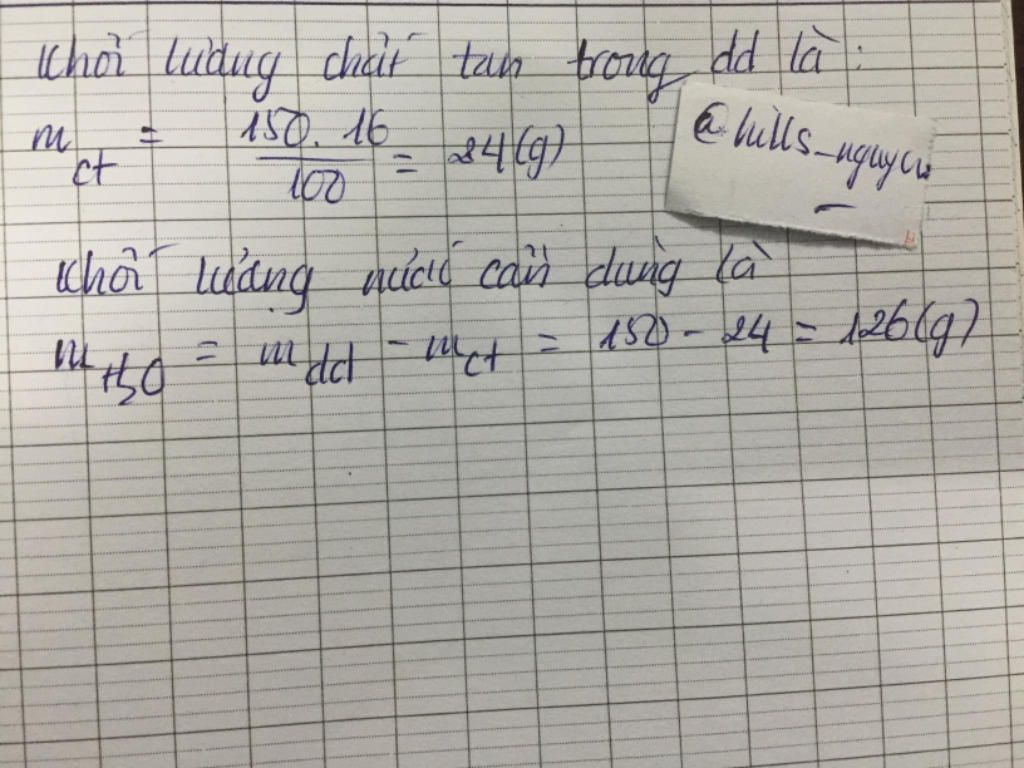 Khối lượng chất tan trong dd là:
m ct = 150.16 / 100 = 24(g)
@hills_nguyen
Khối lượng nước cần dùng là
m H2O = m dd - m ct = 150 - 24 = 126(g)